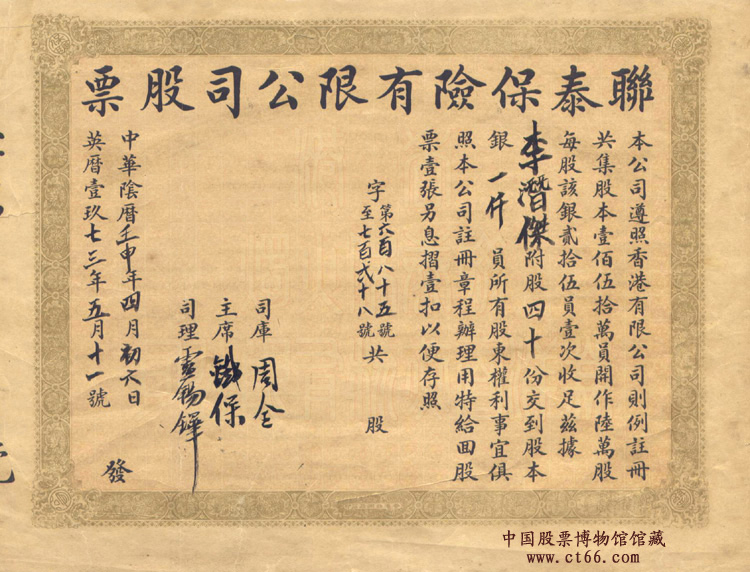 聯泰保險有限公司股票
本公司遵照香港有限公司則例註冊
共集股本壹佰伍拾萬員開作陸萬股
每股該銀貳拾伍員壹次收足茲據
李潛傑附股四十份交到股本
銀一仟員所有股東權利事宜俱
照本公司註冊章程辦理用特給囬股
票壹張另息摺壹扣以便存照
字第六百八十五號至七百弍十八號共 股
司庫 周全
主席 鐵保
司理
中華陰曆壬申年四月初六日
英曆壹玖七三年五月十一號 發
中国股票博物馆馆藏
www.ct66.com